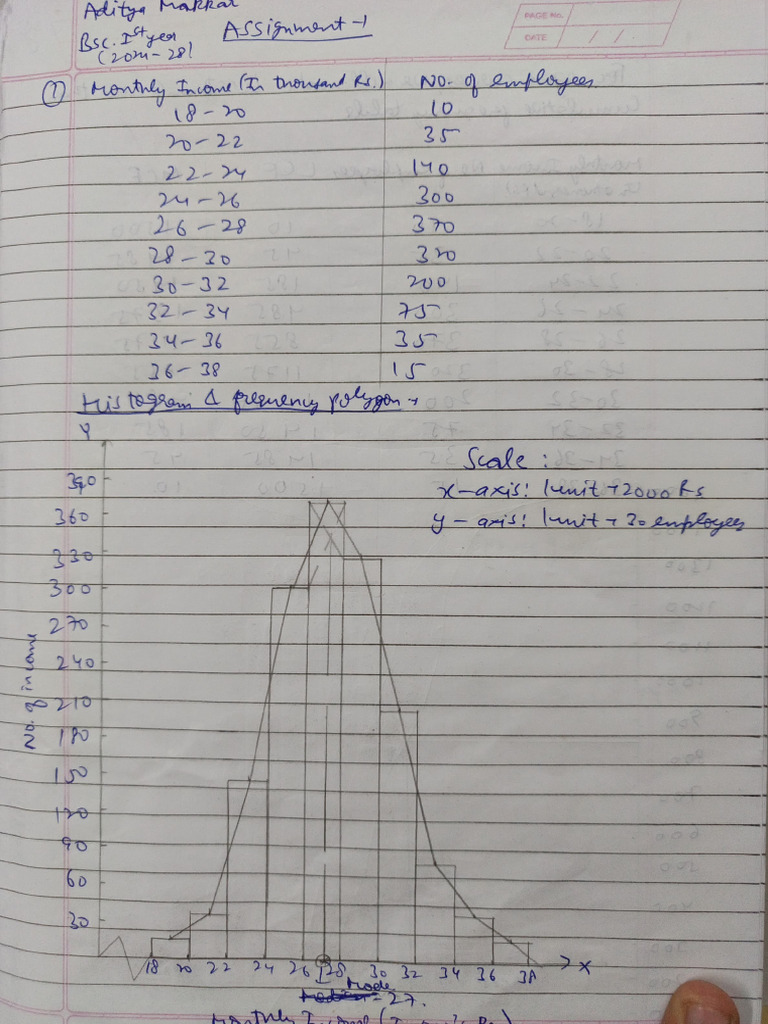 Aditya Makkar
Bsc. Ist year
(2024-28)
Assignment-1
PAGE NO.
DATE / /
① Monthly Income (In thousand Rs.) No. of employees
18-20 10
20-22 35
22-24 140
24-26 300
26-28 370
28-30 320
30-32 200
32-34 75
34-36 35
36-38 15
Histogram & frequency polygon →
Y
Scale :
x-axis: 1unit → 2000 Rs
y-axis: 1unit → 30 employees
390
360
330
300
270
240
210
180
150
120
90
60
30
No. of income
18 20 22 24 26 28 30 32 34 36 38 → X
Mode
= 27.
Monthly Income (